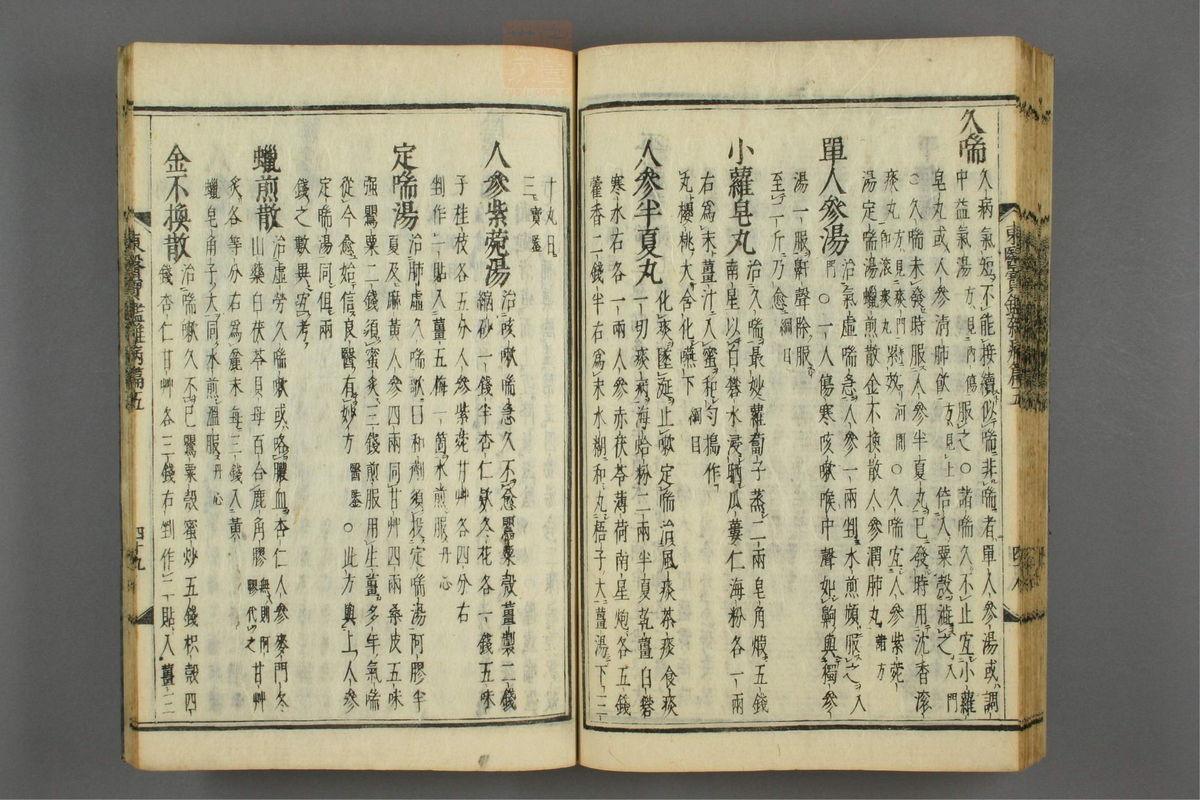 久喘
久病氣短不能接續似喘非喘者單人參湯或調
中益氣湯方見內傷服之○諸喘久不止宜小蘿
皂丸或人參清肺飮方見上倍入粟殼澁之入門
○久喘未發時服人參半夏丸已發時用沈香滾
痰丸方見痰門卽滾痰丸累效河間○久喘宜人參紫菀
湯定喘湯蠟煎散金不換散人參潤肺丸諸方
單人參湯
治氣虛喘急人參一兩剉水煎頻服之入
門○一人傷寒咳嗽喉中聲如鼾與獨參
湯一服鼾聲除服
至一斤乃愈綱目
小蘿皂丸
治久喘最妙蘿葍子蒸二兩皂角煆五錢
南星以白礬水浸晒瓜蔞仁海粉各一兩
右爲末薑汁入蜜和勻搗作
丸櫻桃大含化嚥下綱目
人參半夏丸
化痰墜涎止嗽定喘治風痰茶痰食痰
一切痰病海蛤粉二兩半夏乾薑白礬
寒水石各一兩人參赤茯苓薄荷南星炮各五錢
藿香二錢半右爲末水糊和丸梧子大薑湯下三
東醫寶鑑雜病篇五
十丸日
三寶鑑
人參紫菀湯
治咳嗽喘急久不愈罌粟殼薑製二錢
縮砂一錢半杏仁款冬花各一錢五味
子桂枝各五分人參紫菀甘艸各四分右
剉作一貼入薑五梅一箇水煎服丹心
定喘湯
治肺虛久喘歌曰和劑須投定喘湯阿膠半
夏及麻黃人參四兩同甘艸四兩桑皮五味
强罌粟二錢須蜜炙三錢煎服用生薑多年氣喘
從今愈始信良醫有妙方醫鑑○此方與上人參
定喘湯同但兩
錢之數異宜考
蠟煎散
治虛勞久喘嗽或咯膿血杏仁人參麥門冬
山藥白茯苓貝母百合鹿角膠無則阿膠代之甘艸
炙各等分右爲麤末每三錢入黃
蠟皂角子大同水煎溫服丹心
金不換散
治喘嗽久不已罌粟殼蜜炒五錢枳殼四
錢杏仁甘艸各三錢右剉作二貼入薑三
東醫寶鑑雜病篇五
四十九